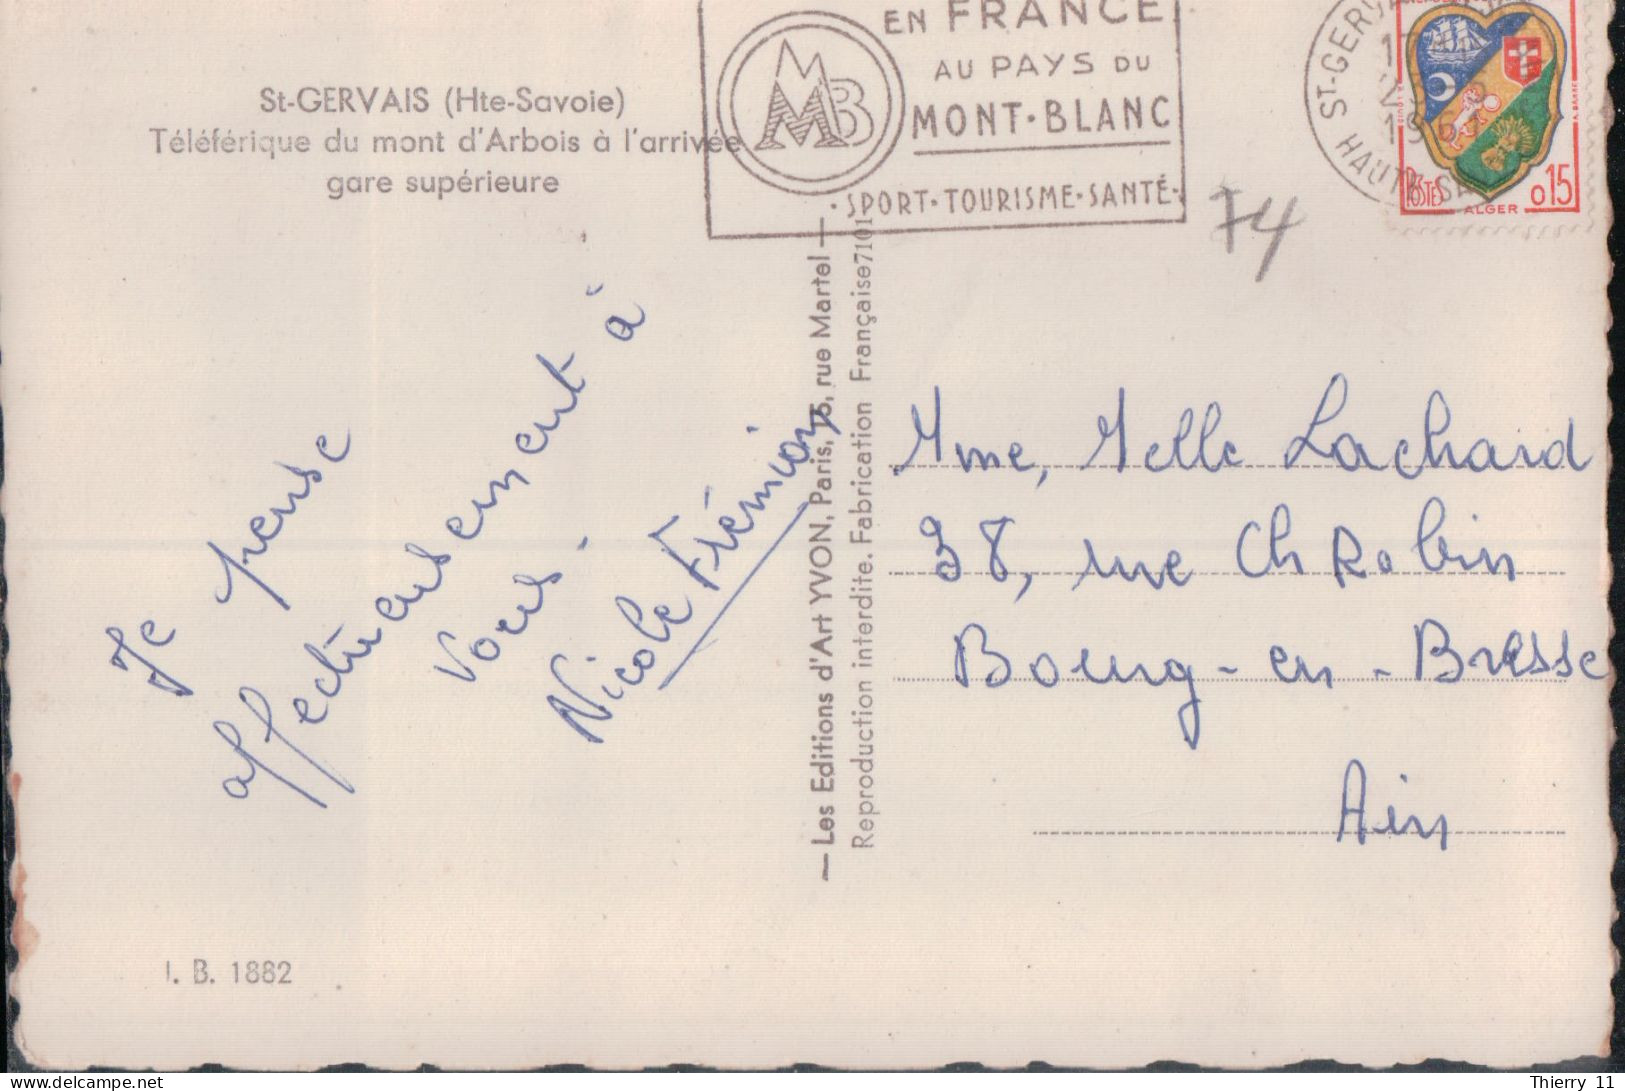 St-GERVAIS (Hte-Savoie)
Téléférique du mont d'Arbois à l'arrivée
gare supérieure
EN FRANCE
AU PAYS DU
MONT-BLANC
MB
·SPORT·TOURISME·SANTÉ·
ST-GERVAIS
HAUTE SA
POSTES
ALGER
0,15
74
Je pense
affectueusement à
vous -
Nicole Frémion
— Les Editions d'Art YVON, Paris, 15, rue Martel —
Reproduction interdite. Fabrication Française 7101
Mme, Melle Lachard
38, rue Ch Robin
Bourg-en-Bresse
Ain
I. B. 1882
Thierry 11